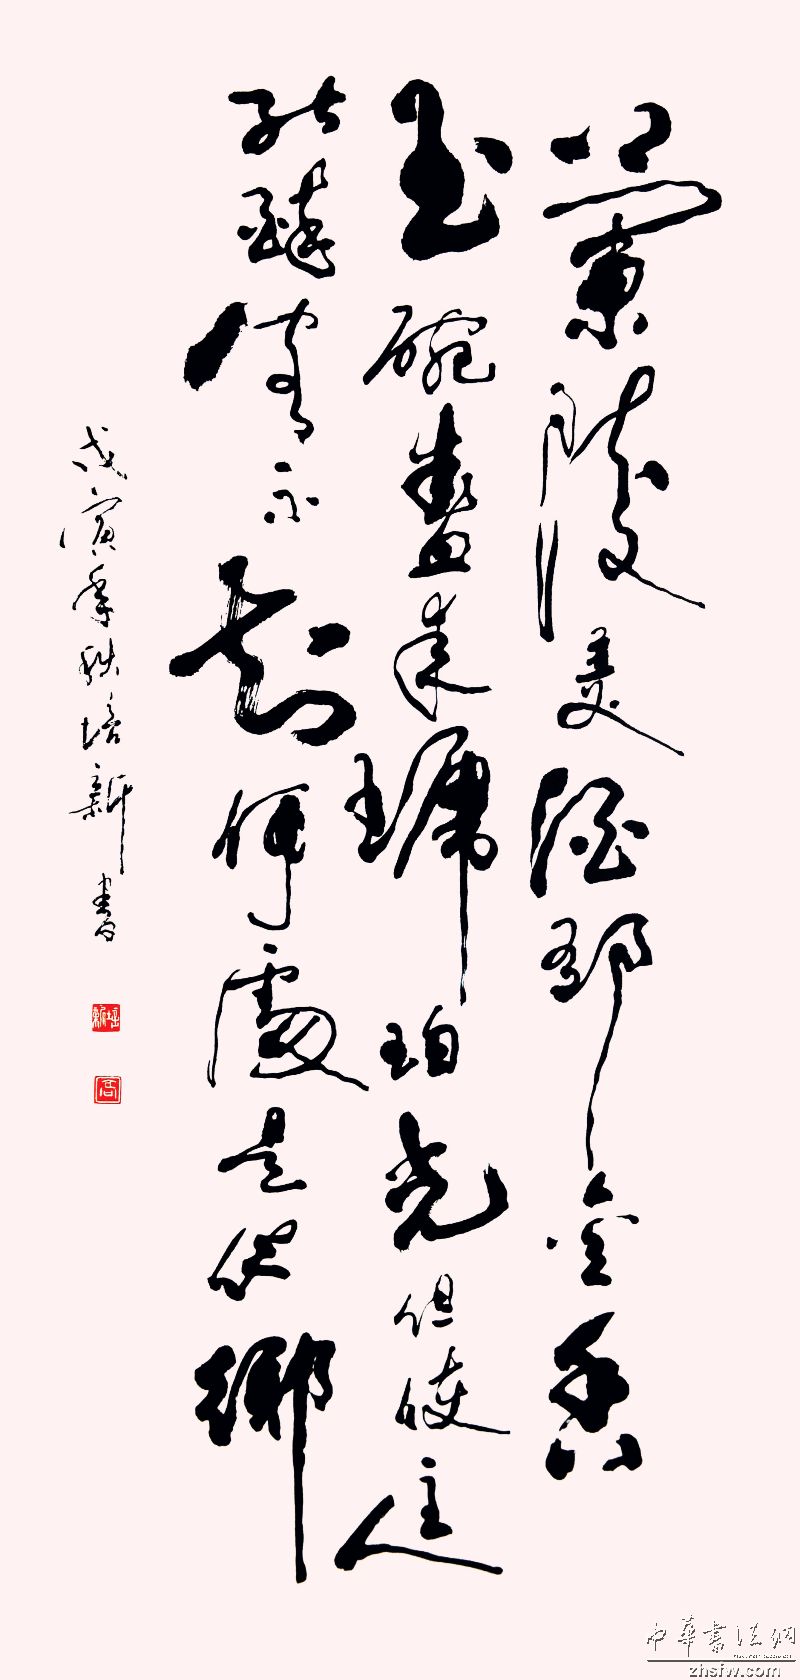 蘭陵美酒郁金香
玉碗盛来琥珀光但使主人
能醉客不知何處是他鄉
戊寅年秋培新書
培新
中華書法網
zhsfw.com